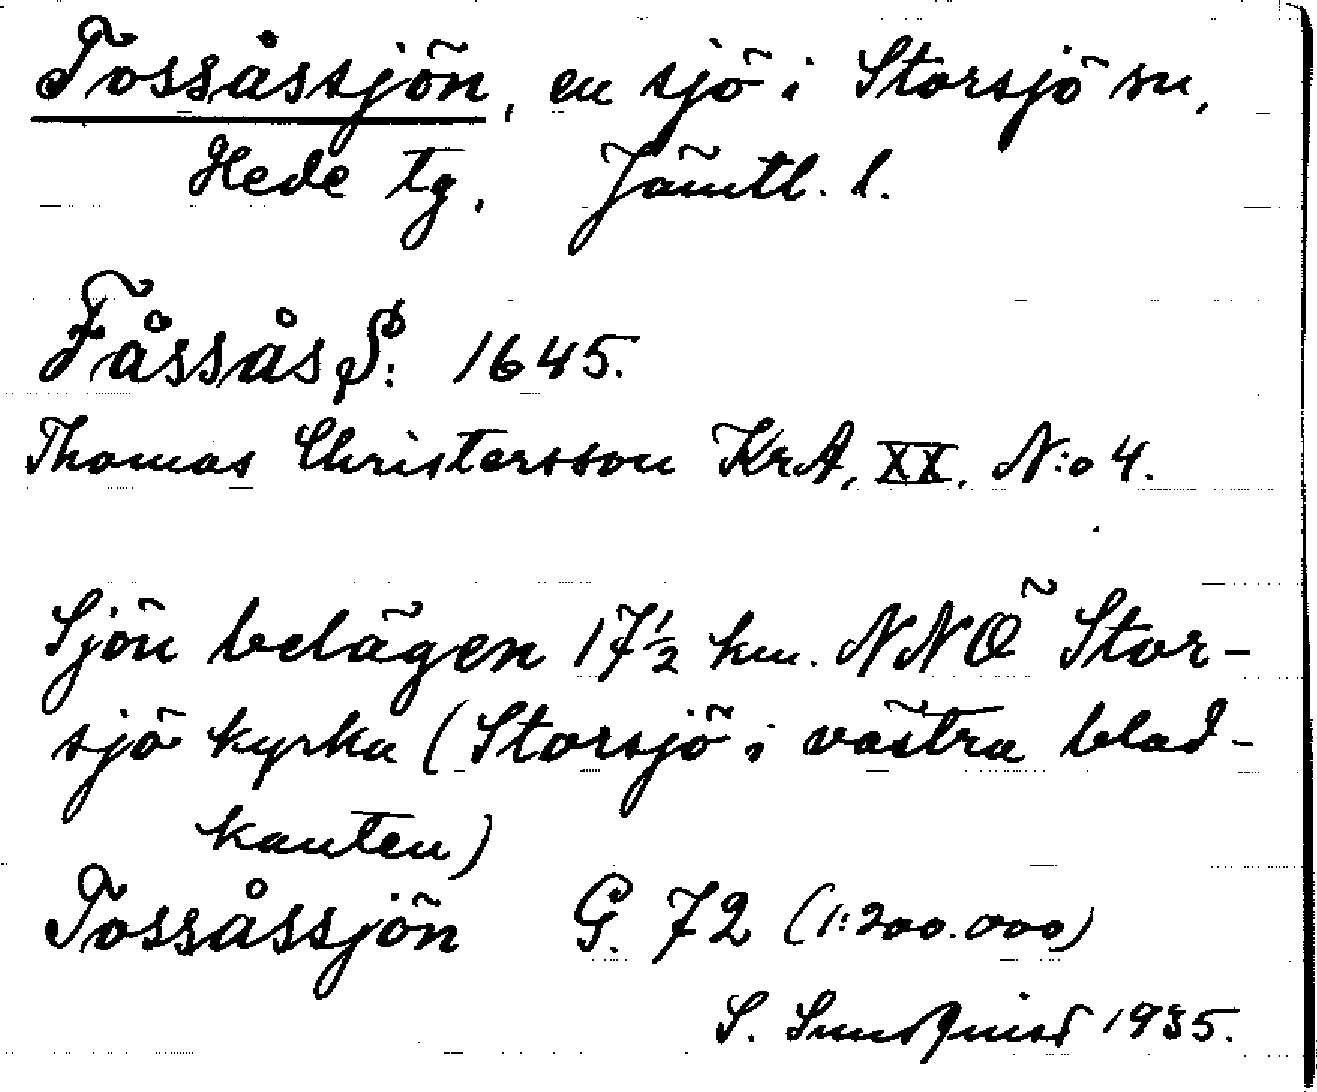 Tossåssjön, en sjö i Storsjö sn,
Hede tg. Jämtl. l.
Fåssås S: 1645.
Thomas Christersson KrA, XX. N:o 4.
Sjön belägen 17½ km. NNÖ Stor-
sjö kyrka (Storsjö i västra blad-
kanten)
Tossåssjön G. 72 (1:200.000)
S. Sundquist 1935.